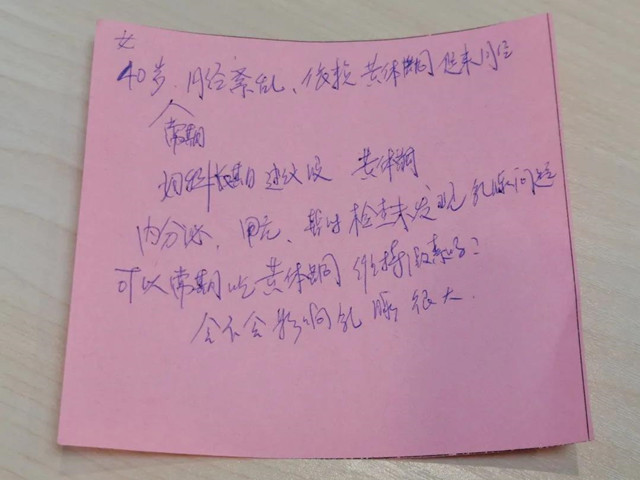 女
40岁.月经紊乱、依赖黄体酮 来月经
常期
妇科长期建议服 黄体酮
内分泌、甲亢、暂时检查未发现乳腺问题
可以常期吃黄体酮维持激素吗?
会不会影响乳腺很大.